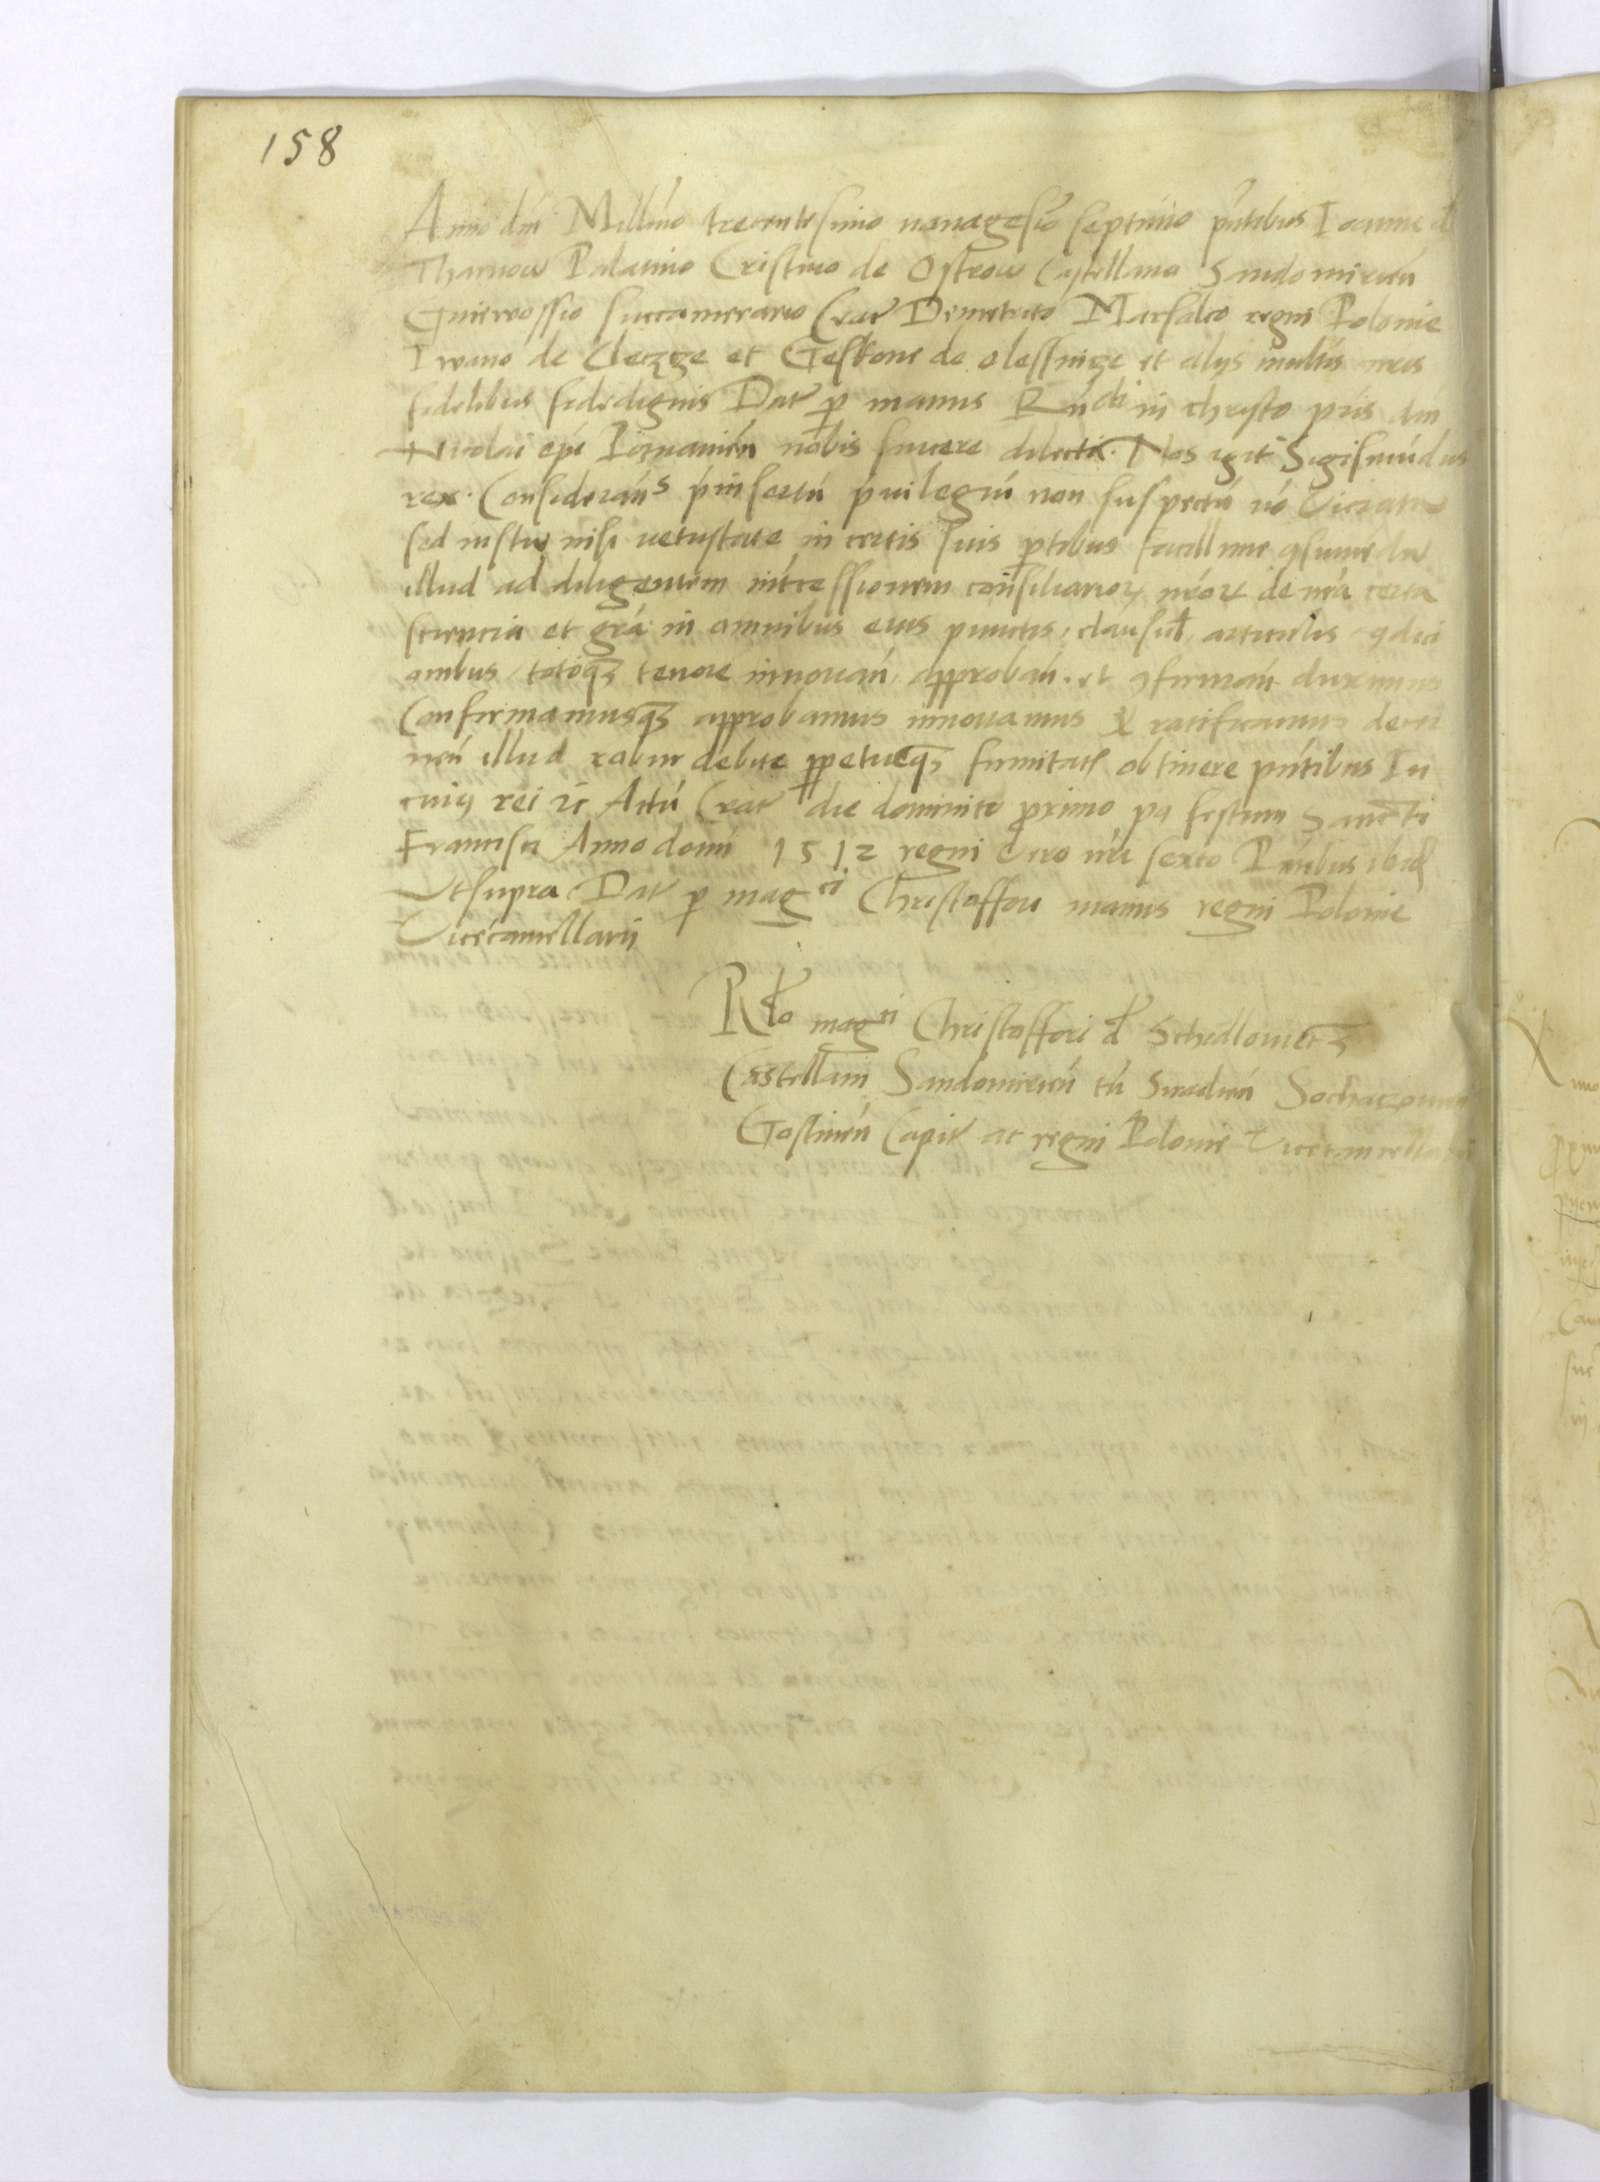 158
Anno dm̄ Millīmo trecentesimo nonagesīo septimo pn̄tibus Ioanne d
Tharnow Palatino Cristino de Ostrow Castellano Sandomirien̄
Gniewossio succamerario Crac Demetrio Marsalco regni Polonie
Iwano de et de Olessnicze et alys multis nr̄is
fidelibus fidedignis Dat p manus Rn̄di in christo pr̄is dm̄
Nicolai epī Poznanien̄ nobis sincere dilecti. Nos igit Sigismūdus
rex. Considerans p̄insertū p̄uilegiū non suspectū nō viciatū
sed iustū nisi uetustate in certis suis ptibus facillime
illud ad diligentem int̄cessionem consiliarior nr̄or de nr̄a certa
sciencia et grā in omnibus eius punctis, clausul, articulis 9dici
onibus totoq3 tenore innouan̄, approban̄. et 9firman̄ duximus
Confirmamusq3 approbamus innouamus & ratificamus decer
nen̄ illud robur debite ppetueq3 firmitat obtinere pn̄tibus In
cuius rei zc Actū Crac die dominico proximo p9 festum Sancti
Francisci Anno domī 1512 regni vero nr̄i sexto Pn̄tibus ibid
Vtsupra Dat p magci Christoffori manus regni Polonie
Vicecancellarii
Rlo magci Christoffori d Schidlowiecz
Castellani Sandomirien̄ tū Siradien̄
Gostinen̄ Capit ac regni Polonie Vicecancellarii